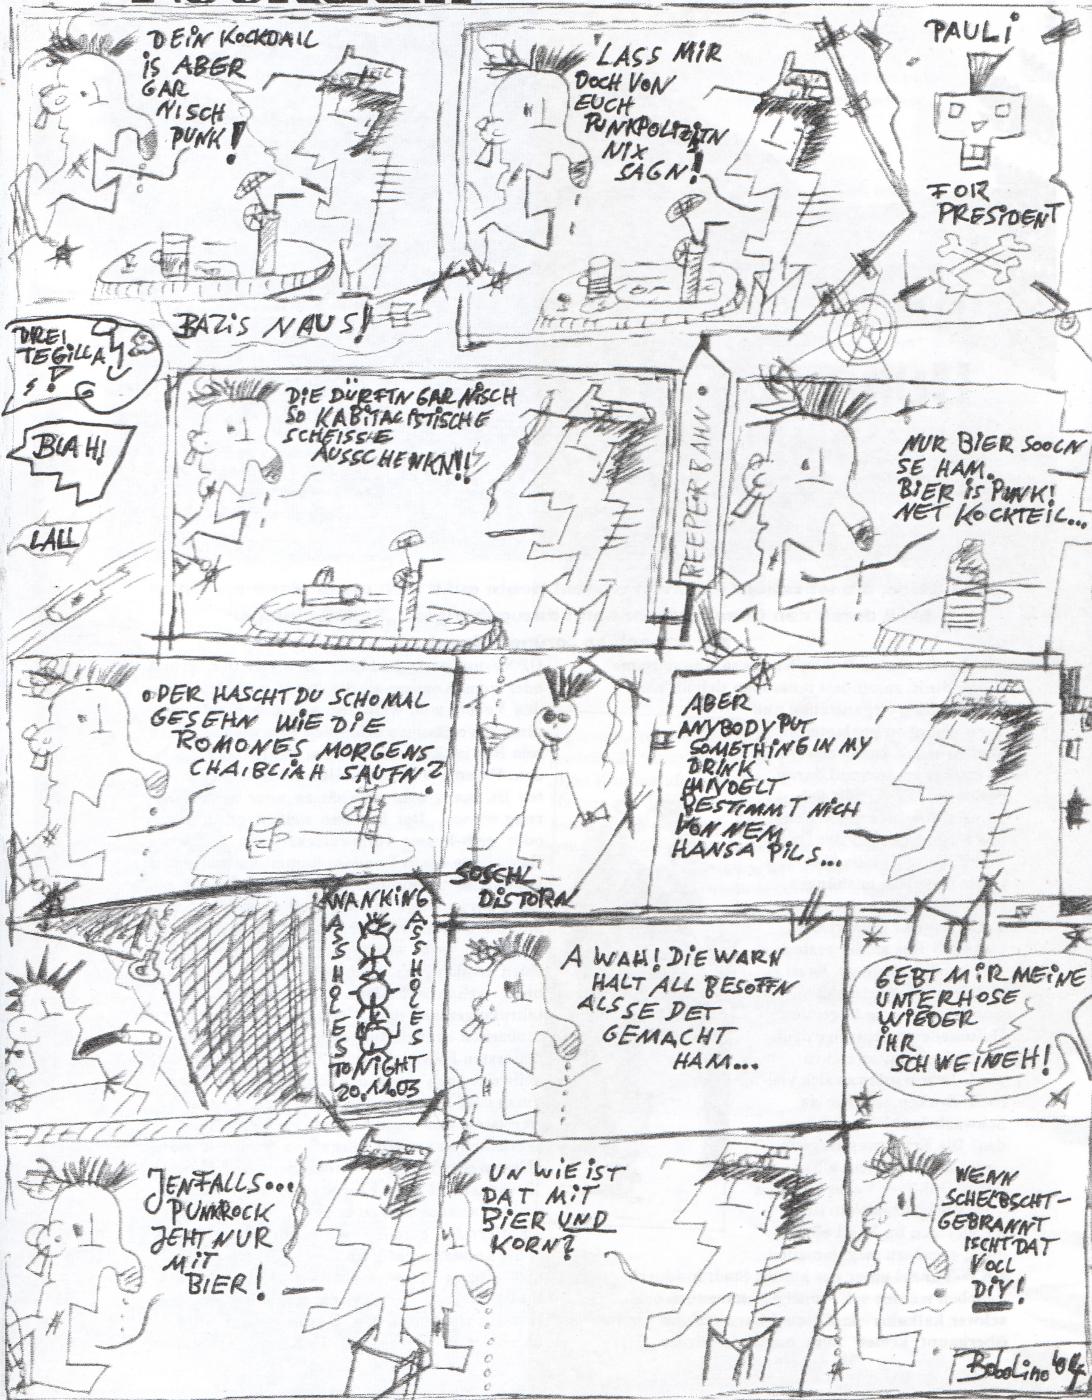 DEIN KOCKDAIL
IS ABER
GAR
NISCH
PUNK!
LASS MIR
DOCH VON
EUCH
PUNKPOLIZITN
NIX
SAGN!
PAULI
FOR
PRESIDENT
BAZIS NAUS!
DREI
TEGILLA
!
BLAH!
LALL
DIE DÜRFTN GAR NISCH
SO KABITALISTISCHE
SCHEISSE
AUSSCHENKN!!
REEPERBAHN
NUR BIER SOOLN
SE HAM.
BIER IS PUNK!
NET KOCKTEIL...
ODER HASCHT DU SCHOMAL
GESEHN WIE DIE
ROMONES MORGENS
CHAIBLIAH SAUFN?
SOSCHL
DISTORN
ABER
ANYBODY PUT
SOMETHING IN MY
DRINK
HANDELT
BESTIMMT NICH
VON NEM
HANSA PILS...
WANKING
ASSHOLES
ASSHOLES
TONIGHT
20.11.03
A WAH! DIE WARN
HALT ALL BESOFFN
ALS SE DET
GEMACHT
HAM...
GEBT MIR MEINE
UNTERHOSE
WIEDER
IHR
SCHWEINEH!
JENFALLS...
PUNKROCK
JEHT NUR
MIT
BIER!
UN WIE IST
DAT MIT
BIER UND
KORN?
WENN
SCHELBSCHT-
GEBRANNT
ISCHT DAT
VOLL
DIY!
BoboLino '04